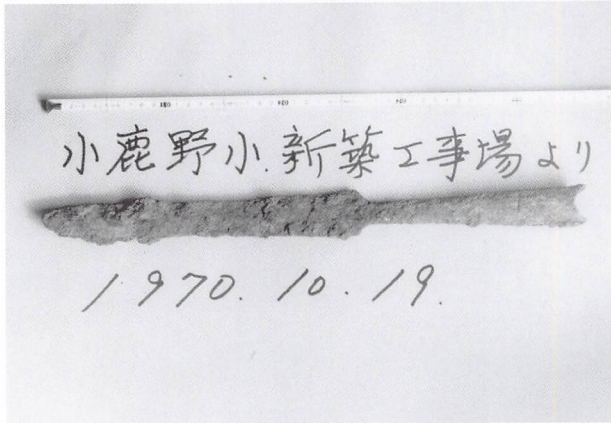 小鹿野小.新築工事場より
1970.10.19.